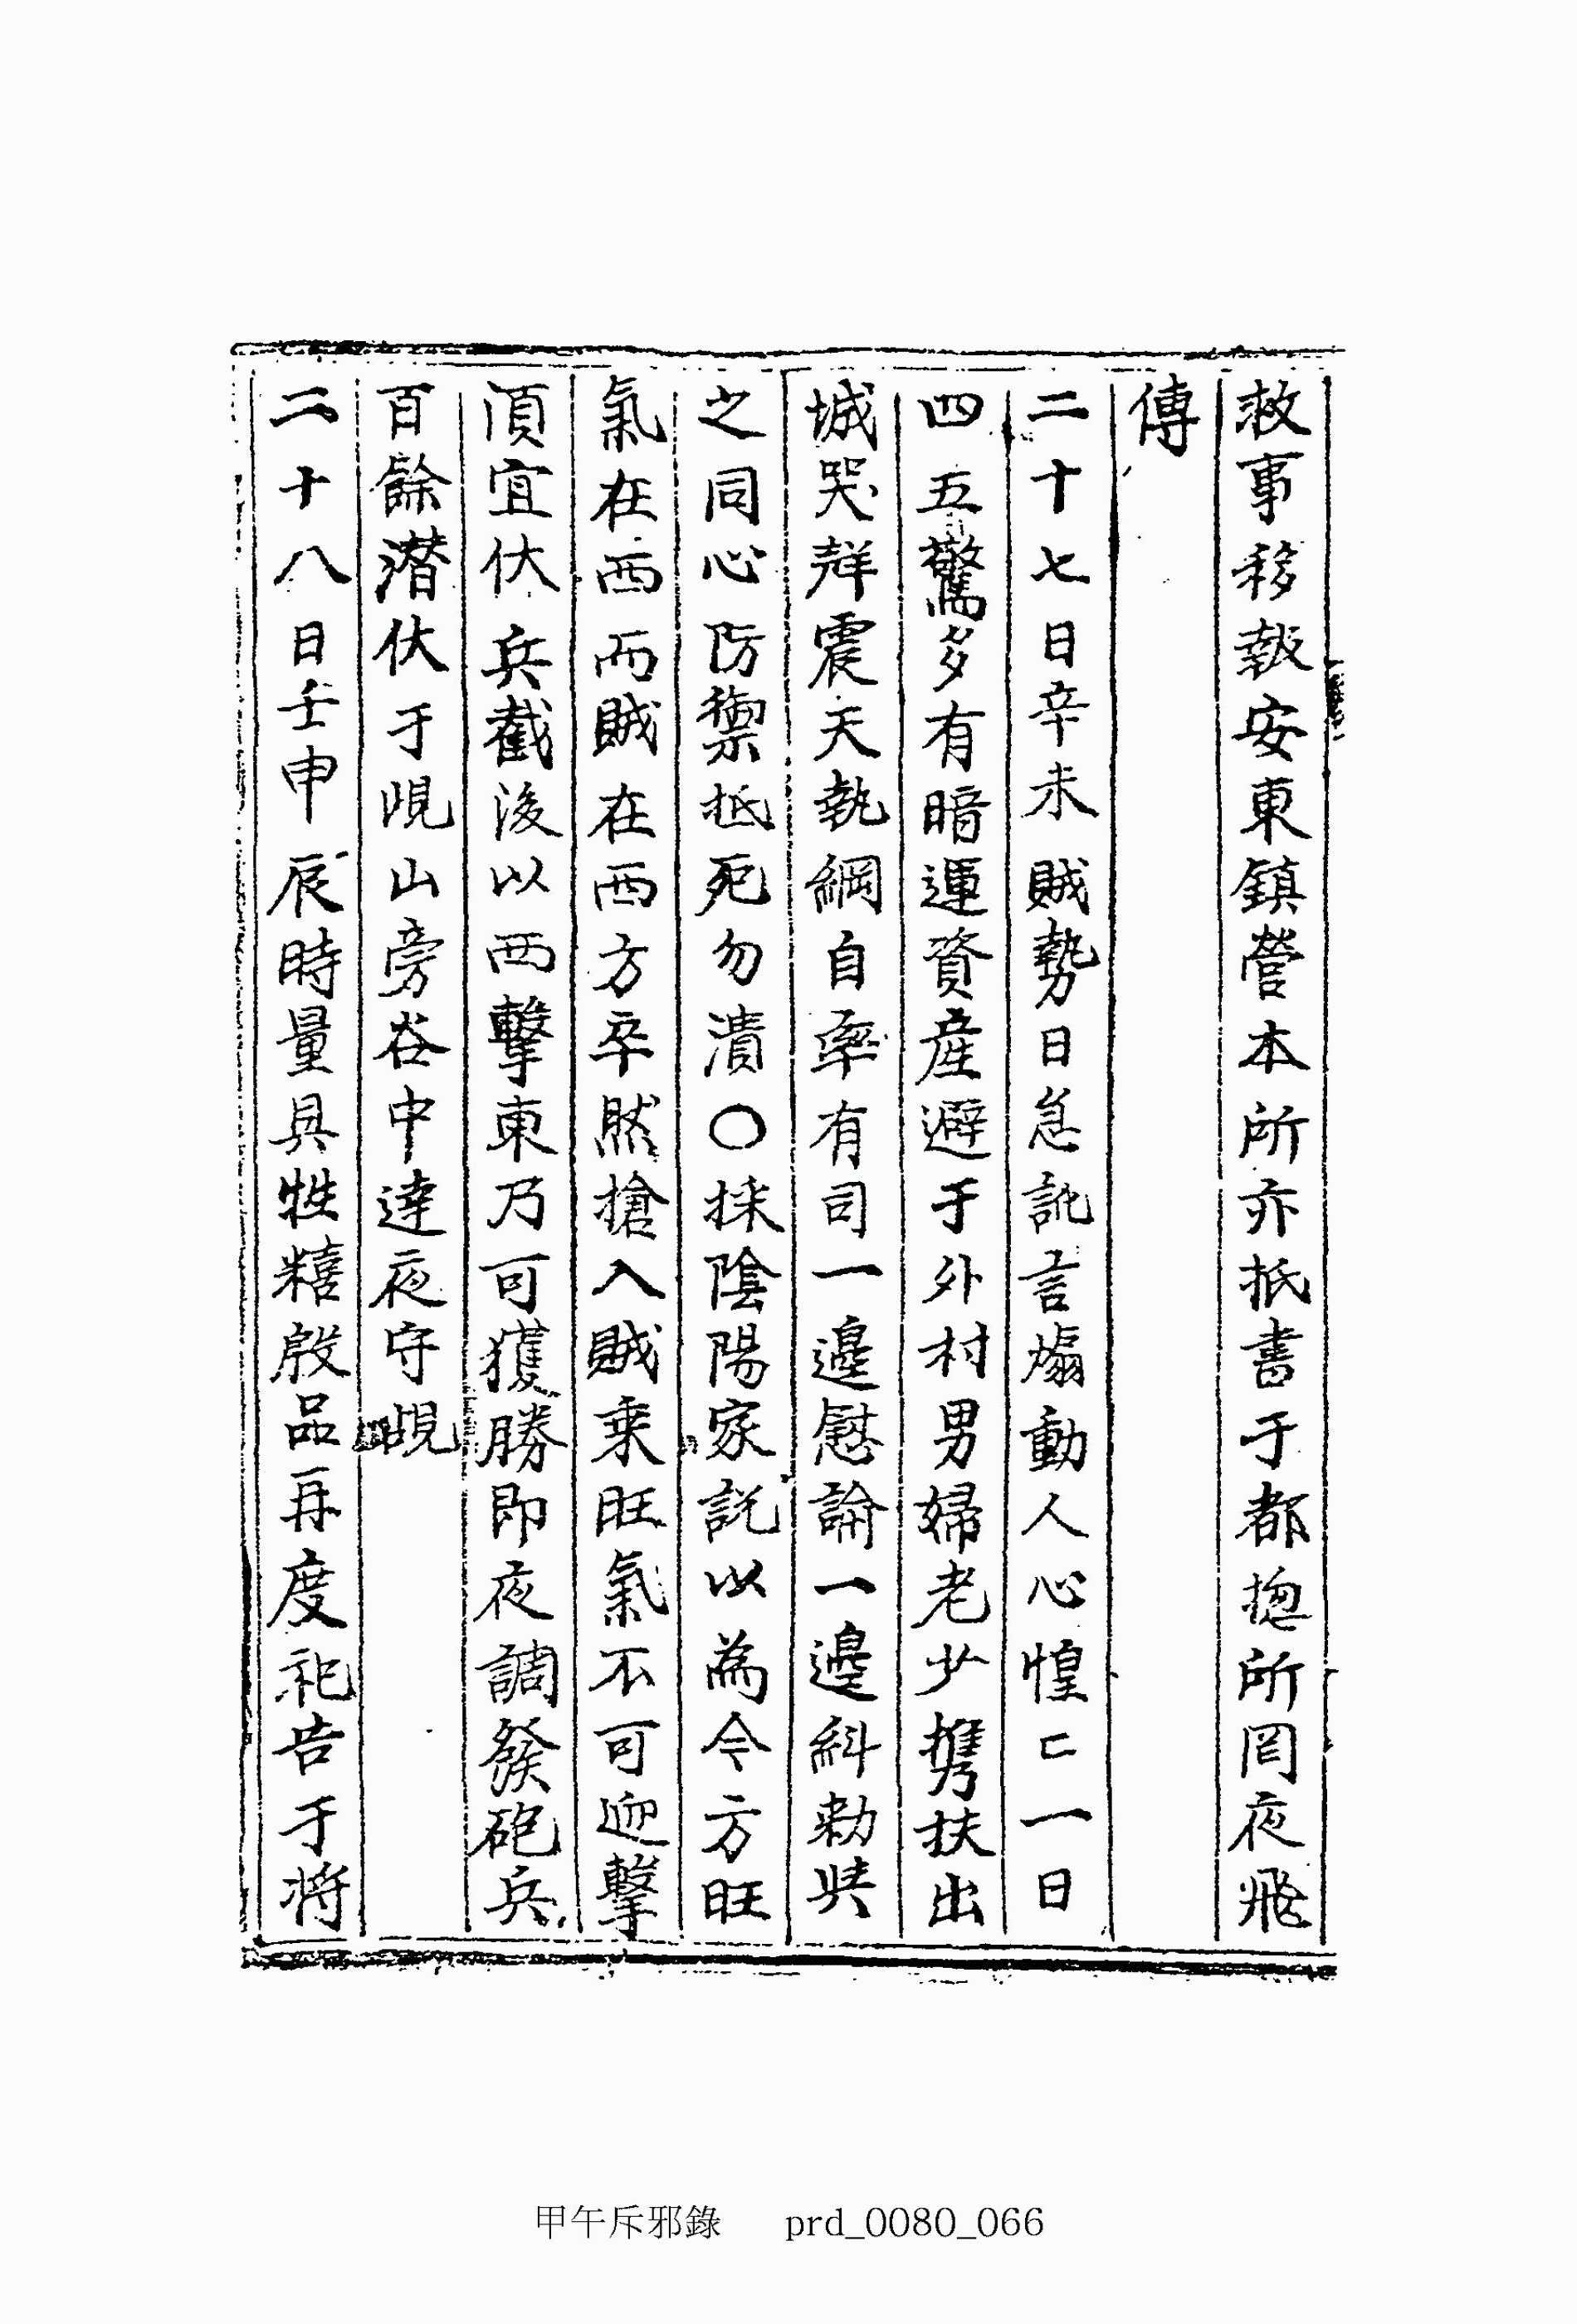 救事移報安東鎭營本所亦抵書于都揔所罔夜飛
傳
二十七日辛未賊勢日急訛言煽動人心惶〻一日
四五驚多有暗運資産避于外村男婦老少携扶出
城哭聲震天執綱自率有司一邊慰諭一邊糾勅與
之同心防禦抵死勿潰○採陰陽家說以為今方旺
氣在西而賊在西方卒然搶入賊乗旺氣不可迎擊
須宜伏兵截後以西擊東乃可獲勝即夜調發砲兵
百餘潜伏于峴山旁谷中達夜守覘
二十八日壬申辰時量具牲糦殽品再度祀告于將
甲午斥邪錄 prd_0080_066